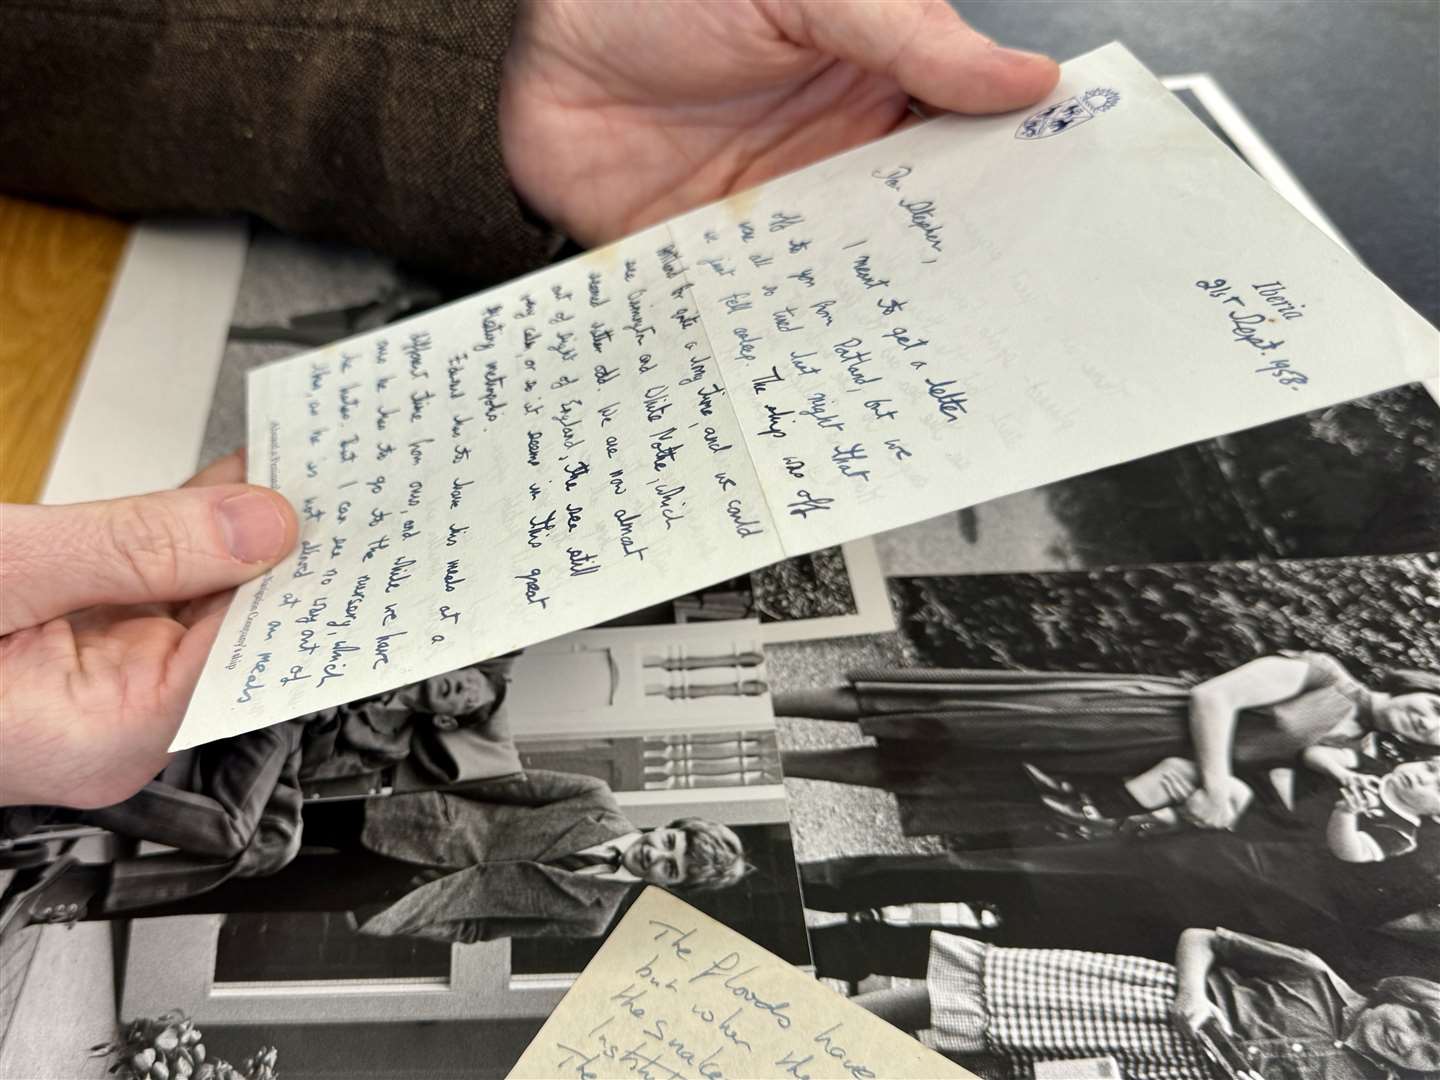 Iberia
21st Sept. 1958.
Dear Stephen,
I meant to get a letter
off to you from Portland, but we
were all so tired last night that
we just fell asleep. The ship was off
Portland for quite a long time, and we could
see Osmington and White Nothe, which
seemed rather odd. We are now almost
out of sight of England, the sea still
very calm, or so it seems in this great
floating metropolis.
Edward has to have his meals at a
different time from ours, and while we have
ours he has to go to the nursery, which
he hates. But I can see no way out of
this, as he is not allowed at our meals.
Navigation Company's ship
The Ploods have
but when the
the snake
Instit
The